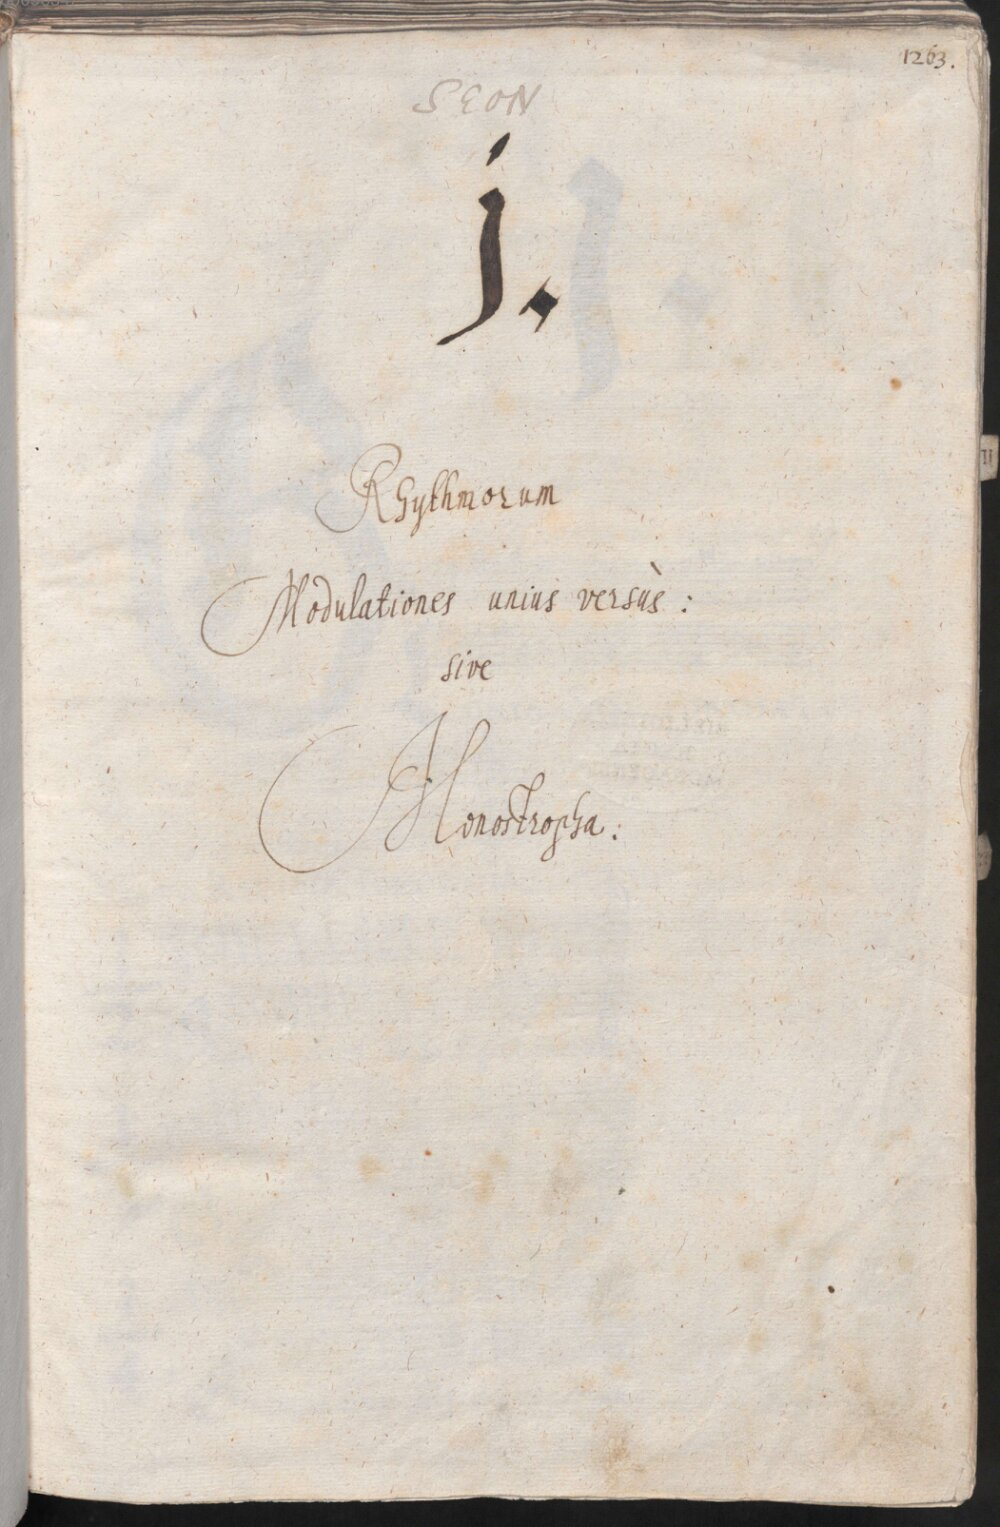 1263.
SEON
j.
Rhythmorum
Modulationes unius versùs:
sive
Monostropha:
II